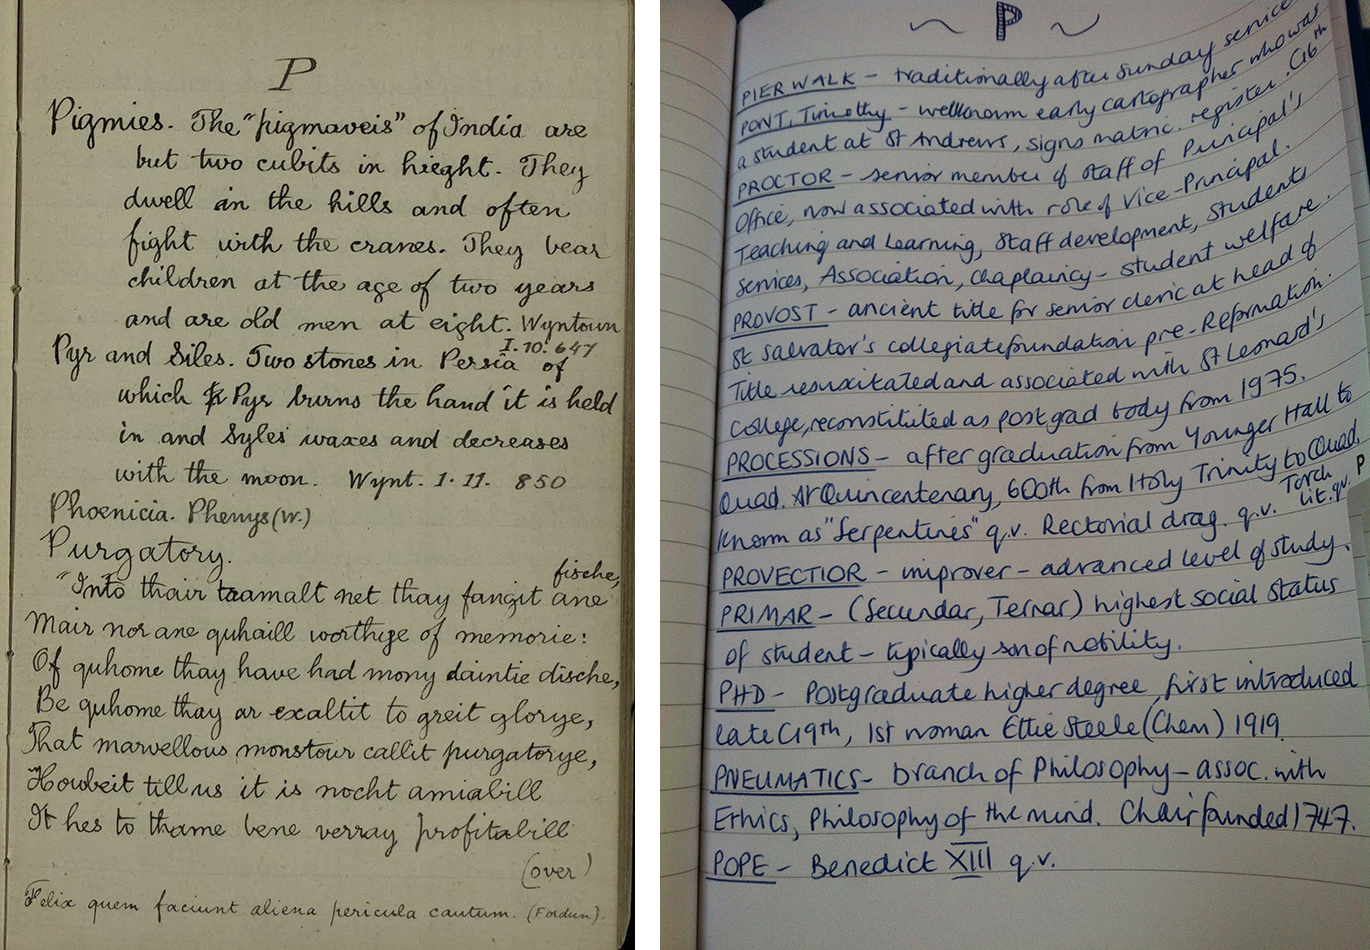 P
Pigmies. The "pigmaveis" of India are
but two cubits in hieght. They
dwell in the hills and often
fight with the cranes. They bear
children at the age of two years
and are old men at eight. Wyntoun
I. 10. 647
Pyr and Siles. Two stones in Persia of
which Pyr burns the hand it is held
in and Syles waxes and decreases
with the moon. Wynt. 1. 11. 850
Phoenicia. Phenys (W.)
Purgatory.
fische,
"Into thair traamalt net thay fangit ane
Mair nor ane quhaill worthye of memorie:
Of quhome thay have had mony daintie dische,
Be quhome thay ar exaltit to greit glorye,
That marvellous monstour callit purgatorye,
Howbeit till us it is nocht amiabill
It hes to thame bene verray profitabill
(over)
Felix quem faciunt aliena pericula cautum. (Fordun).
~ P ~
PIER WALK - traditionally after Sunday service
PONT, Timothy - wellknown early cartographer who was
a student at St Andrews, signs matric. register. C16th
PROCTOR - senior member of staff of Principal's
Office, now associated with role of Vice-Principal.
Teaching and Learning, Staff development, Students
services, Association, Chaplaincy - student welfare.
PROVOST - ancient title for senior cleric at head of
St Salvator's collegiate foundation pre-Reformation.
Title resuscitated and associated with St Leonard's
College, reconstituted as postgrad body from 1975.
PROCESSIONS - after graduation from Younger Hall to
Quad. At Quincentenary, 600th from Holy Trinity to Quad.
Known as "Serpentines" q.v. Rectorial drag. q.v. Torch
lit. q.v. P
PROVECTIOR - improver - advanced level of study.
PRIMAR - (Secundar, Ternar) highest social status
of student - typically son of nobility.
PHD - Postgraduate higher degree, first introduced
late C19th, 1st woman Ettie Steele (Chem) 1919.
PNEUMATICS - branch of Philosophy - assoc. with
Ethics, Philosophy of the mind. Chair founded 1747.
POPE - Benedict XIII q.v.